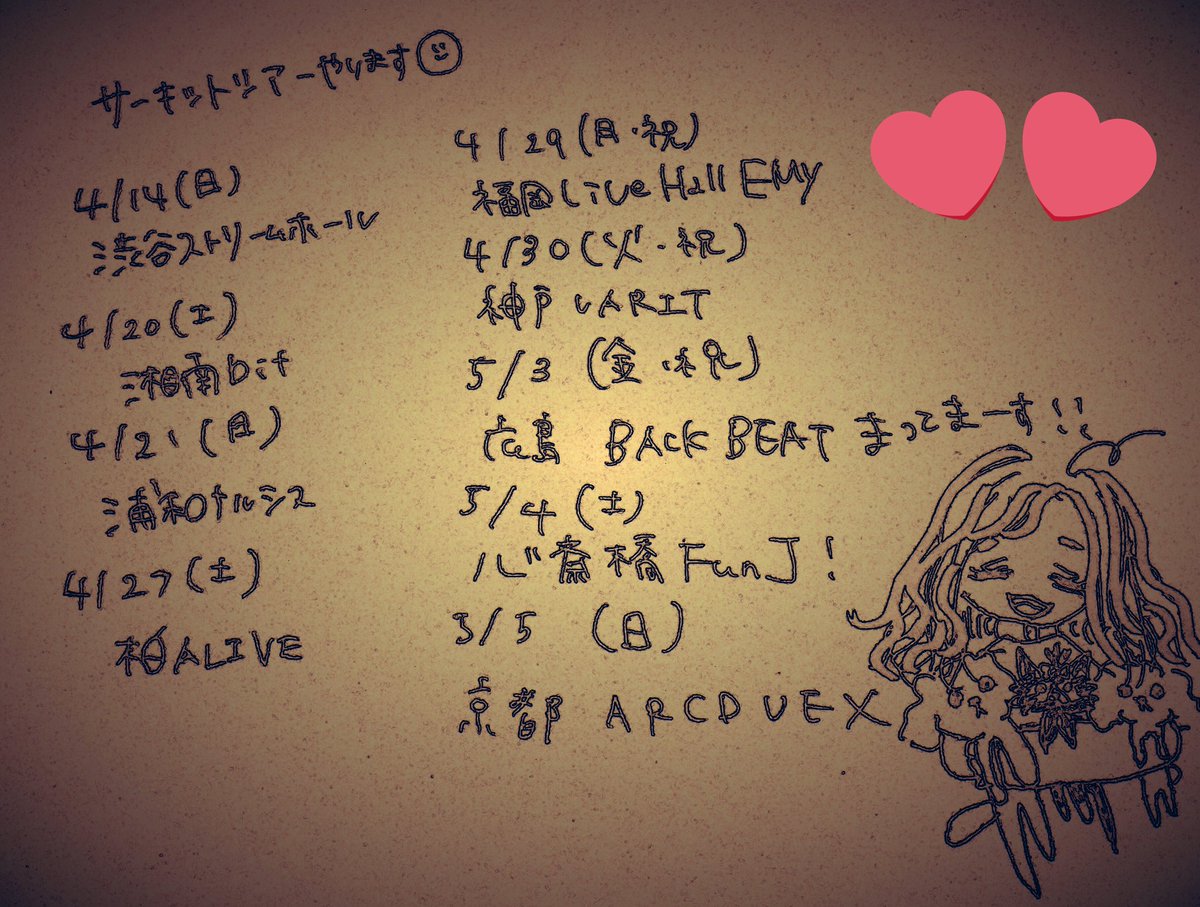 サーキットツアーやります
4/14(日)
渋谷ストリームホール
4/20(土)
湘南bit
4/21(日)
浦和ナルシス
4/27(土)
柏ALIVE
4/29(日・祝)
福岡Live Hall EMy
4/30(火・祝)
神戸VARIT
5/3 (金・祝)
広島 BACK BEAT まってまーす!!
5/4 (土)
心斎橋 FanJ!
3/5 (日)
京都 ARCDUEX